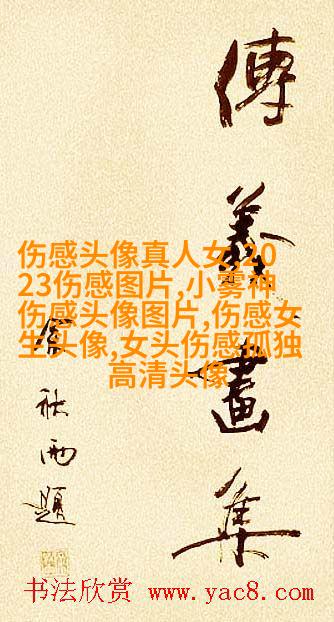 傅義畫集
余秋雨題
伤感头像真人女,20
23伤感图片,小雾神
伤感头像图片,伤感女
生头像,女头伤感孤独
高清头像
书法欣赏 www.yac8.com